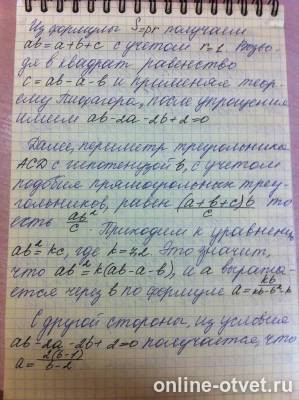 Из формулы S=pr получаем
ab=a+b+c с учетом r=1. Возво-
дя в квадрат равенство
c=ab-a-b и применяя теор-
ему Пифагора, после упрощения
имеем ab-2a-2b+2=0
Далее, периметр треугольника
ACD с гипотенузой b, с учетом
подобия прямоугольных треу-
гольников, равен (a+b+c)b/c то
есть ab²/c. Приходим к уравнению
ab²=kc, где k=7,2. Это значит,
что ab²=k(ab-a-b), и a выража-
ется через b по формуле a=kb/kb-b²-k
С другой стороны, из условия
ab-2a-2b+2=0 получается, что
a=2(b-1)/b-2
online-otvet.ru